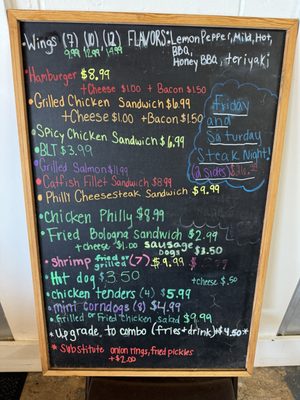 Wings (7) (10) (12) FLAVORS: Lemon Pepper, Mild, Hot,
9.99 12.99 14.99 BBQ,
Honey BBQ, teriyaki
Hamburger $8.99
+Cheese $1.00 + Bacon $1.50
Grilled Chicken Sandwich $6.99
+Cheese $1.00 +Bacon $1.50
Spicy Chicken Sandwich $6.99
BLT $3.99
Grilled Salmon $11.99
Catfish Fillet Sandwich $8.99
Philly Cheesesteak Sandwich $9.99
Friday
and
Saturday
Steak Night!
(2 sides)
Chicken Philly $8.99
Fried Bologna Sandwich $2.99
+cheese $1.00 Sausage
Dogs $3.50
Shrimp fried or grilled (7) $9.99
Hot dog $3.50 +cheese $.50
chicken tenders (4) $5.99
mini corndogs (8) $4.99
Grilled or Fried chicken salad $9.99
*Upgrade to combo (fries+drink)+$4.50*
* Substitute onion rings, fried pickles
+$2.00